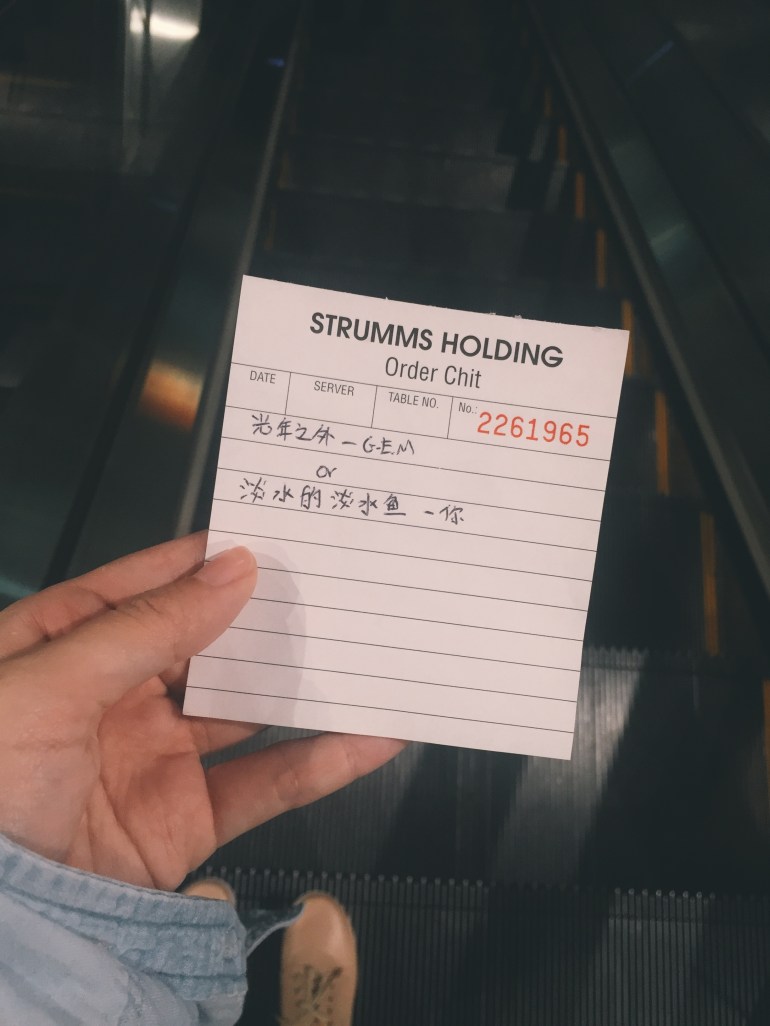 STRUMMS HOLDING
Order Chit
DATE SERVER TABLE NO. No.: 2261965
光年之外 - G.E.M
or
淡水的淡水鱼 - 你